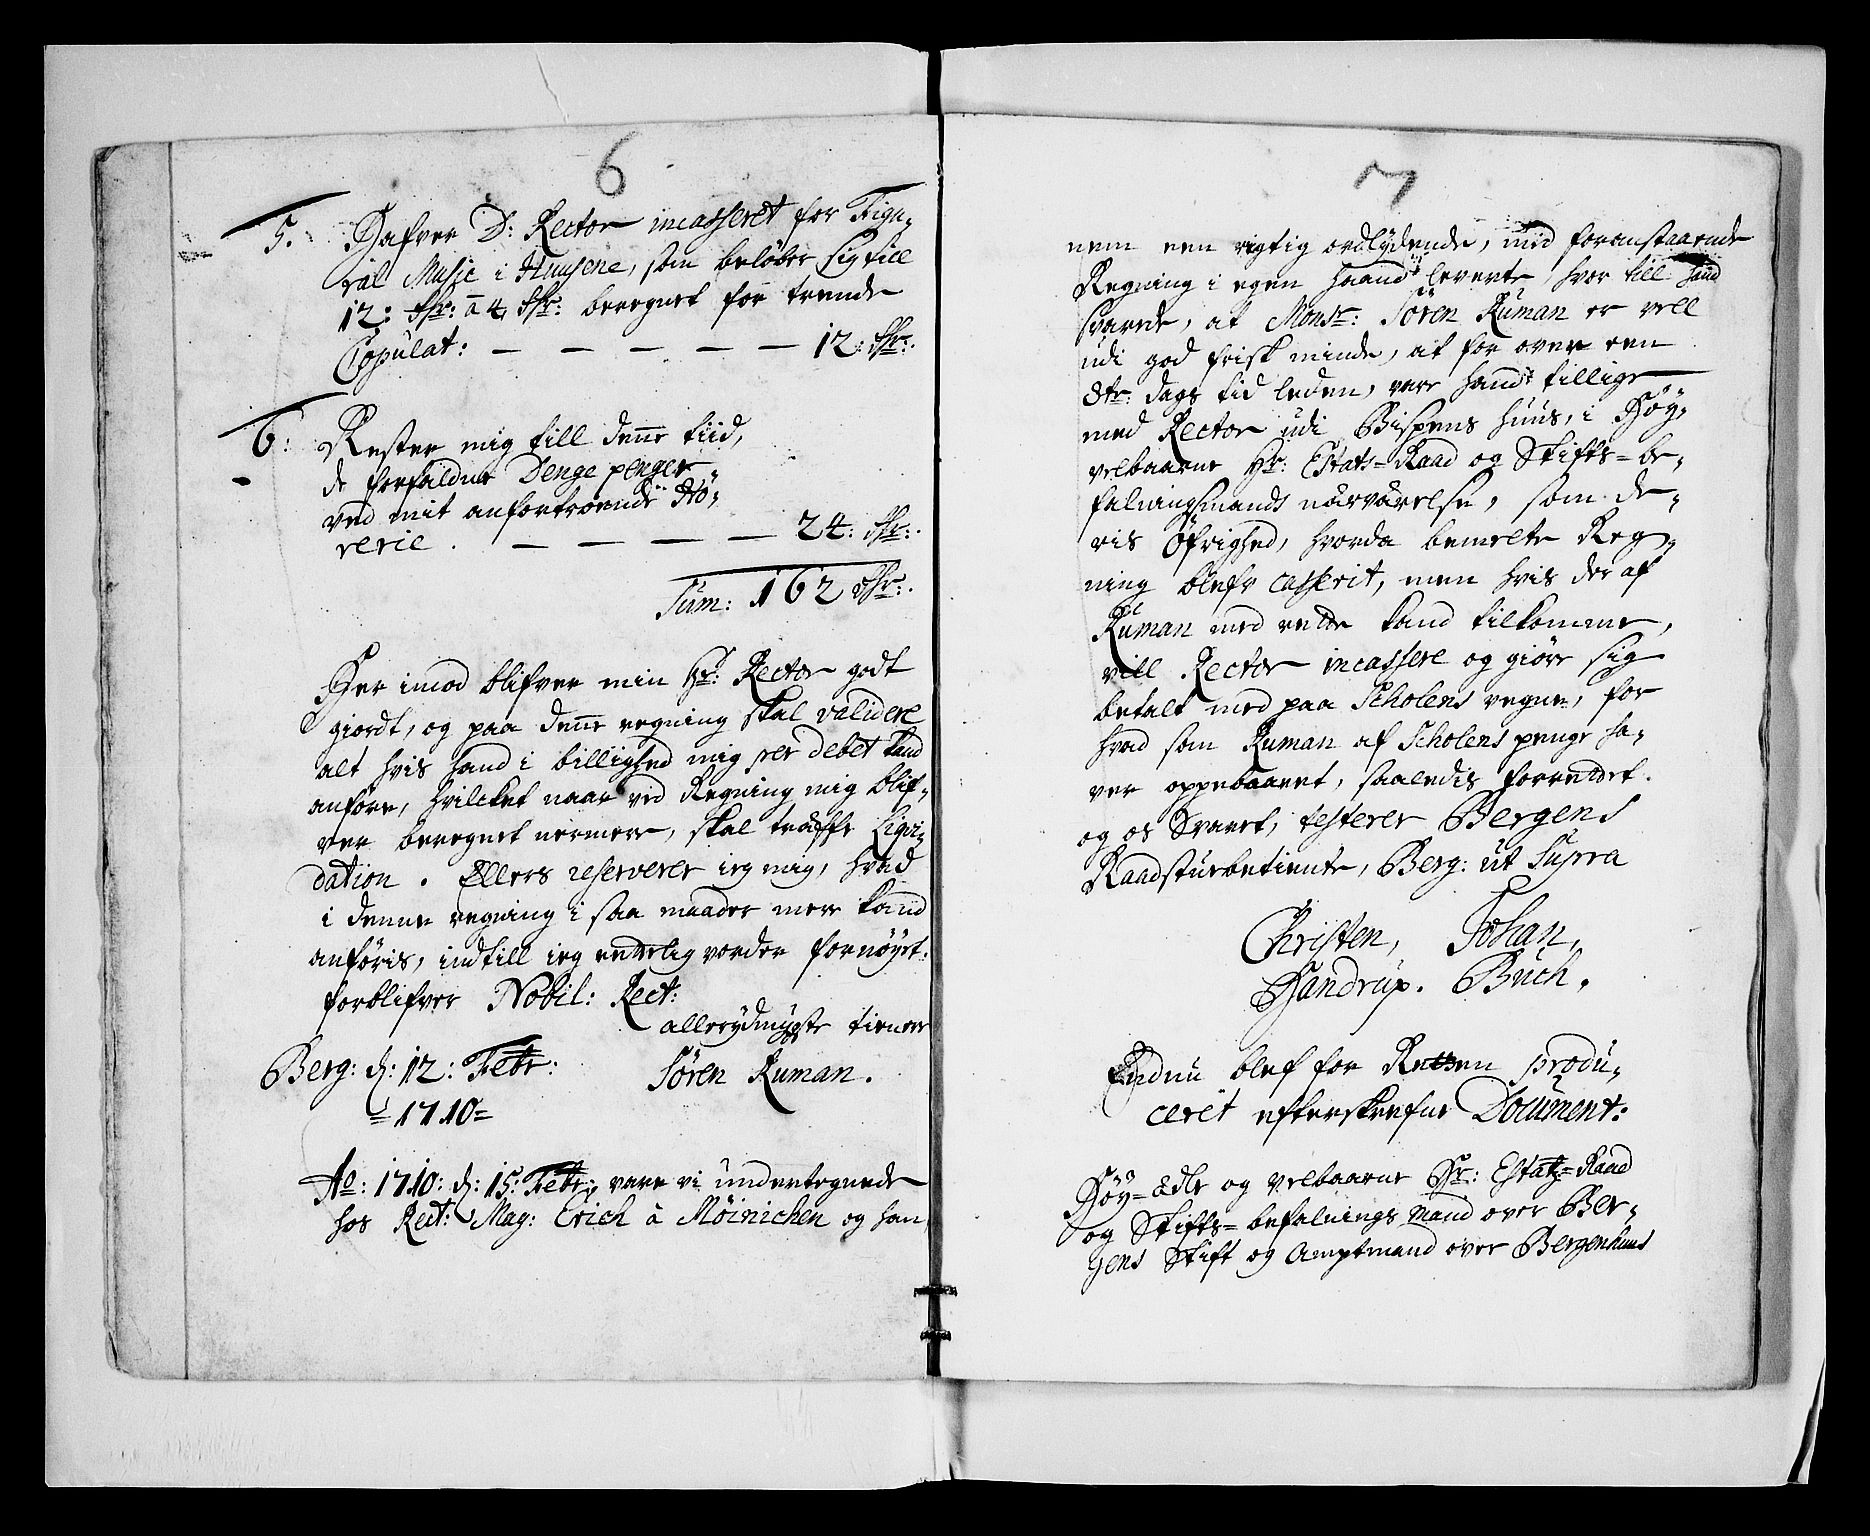 6
5. Hafver D: Rector incasseret for Figu-
ral Music i Huusene, som beløber sig till
12: dlr: à 4, dlr: beregnet for trende
Copulat: — — — — — 12: dlr:
6: Rester mig till denne tiid,
de forfaldne Denge penger
ved mit anfortroende Hö-
rerie. — — — — 24: dlr:
Sum: 162 dlr:
Her imod blifver min Hr: Rector godt
giordt, og paa denne regning skal validere
alt hvis hand i billighed mig per debet kand
anføre, hvilcket naar ved Regning mig blif-
ver beregnet nermere, skal træffe Liqvi-
dation. Ellers reserverer ieg mig, hvad
i denne regning i saa maader mere kand
anføris, indtill ieg endelig vorder fornøyet.
forblifver Nobil: Rect:
allerydmygste tienere
Berg: d: 12: Febr: Søren Ruman.
=1710=
Ao: 1710: d: 15: Febr: vare vi undertegnede
hos Rect: Mag: Erich à Möinichen og han
7
nem een rigtig ordlydende, med foranstaaende
Regning i egen haand leverte, hvor till hand
svarede, at Monsr: Sören Ruman er vell
udi god frisk minde, at for over een
8te: dags tid leden, vare hand tillige
med Rector udi Bispens huus, i Høy-
velbaarne Hr: Estats-Raad og Stifts-be-
falningsmands nærværelse, som de-
ris Øfrighed, hvorda bemelte Reg-
ning blefv casserit, men hvis der af
Ruman med rette kand tilkomme,
vill Rector incassere og giöre sig
betalt med paa Scholens vegne, for
hvad som Ruman af Scholens penge ha-
ver oppebaaret, saaledis forrettet.
og os Svaret, testerer Bergens
Raadstuebetiente, Berg: ut Supra
Christen, Johan,
Handrup. Buch.
Endnu blef for Retten produ-
ceret efterskrefne Document:
Høy-ædle og velbaarne Hr: Estatz-Raad
og Stifts-befalnings mand over Ber-
gens Stift og Amptmand over Bergenhuus